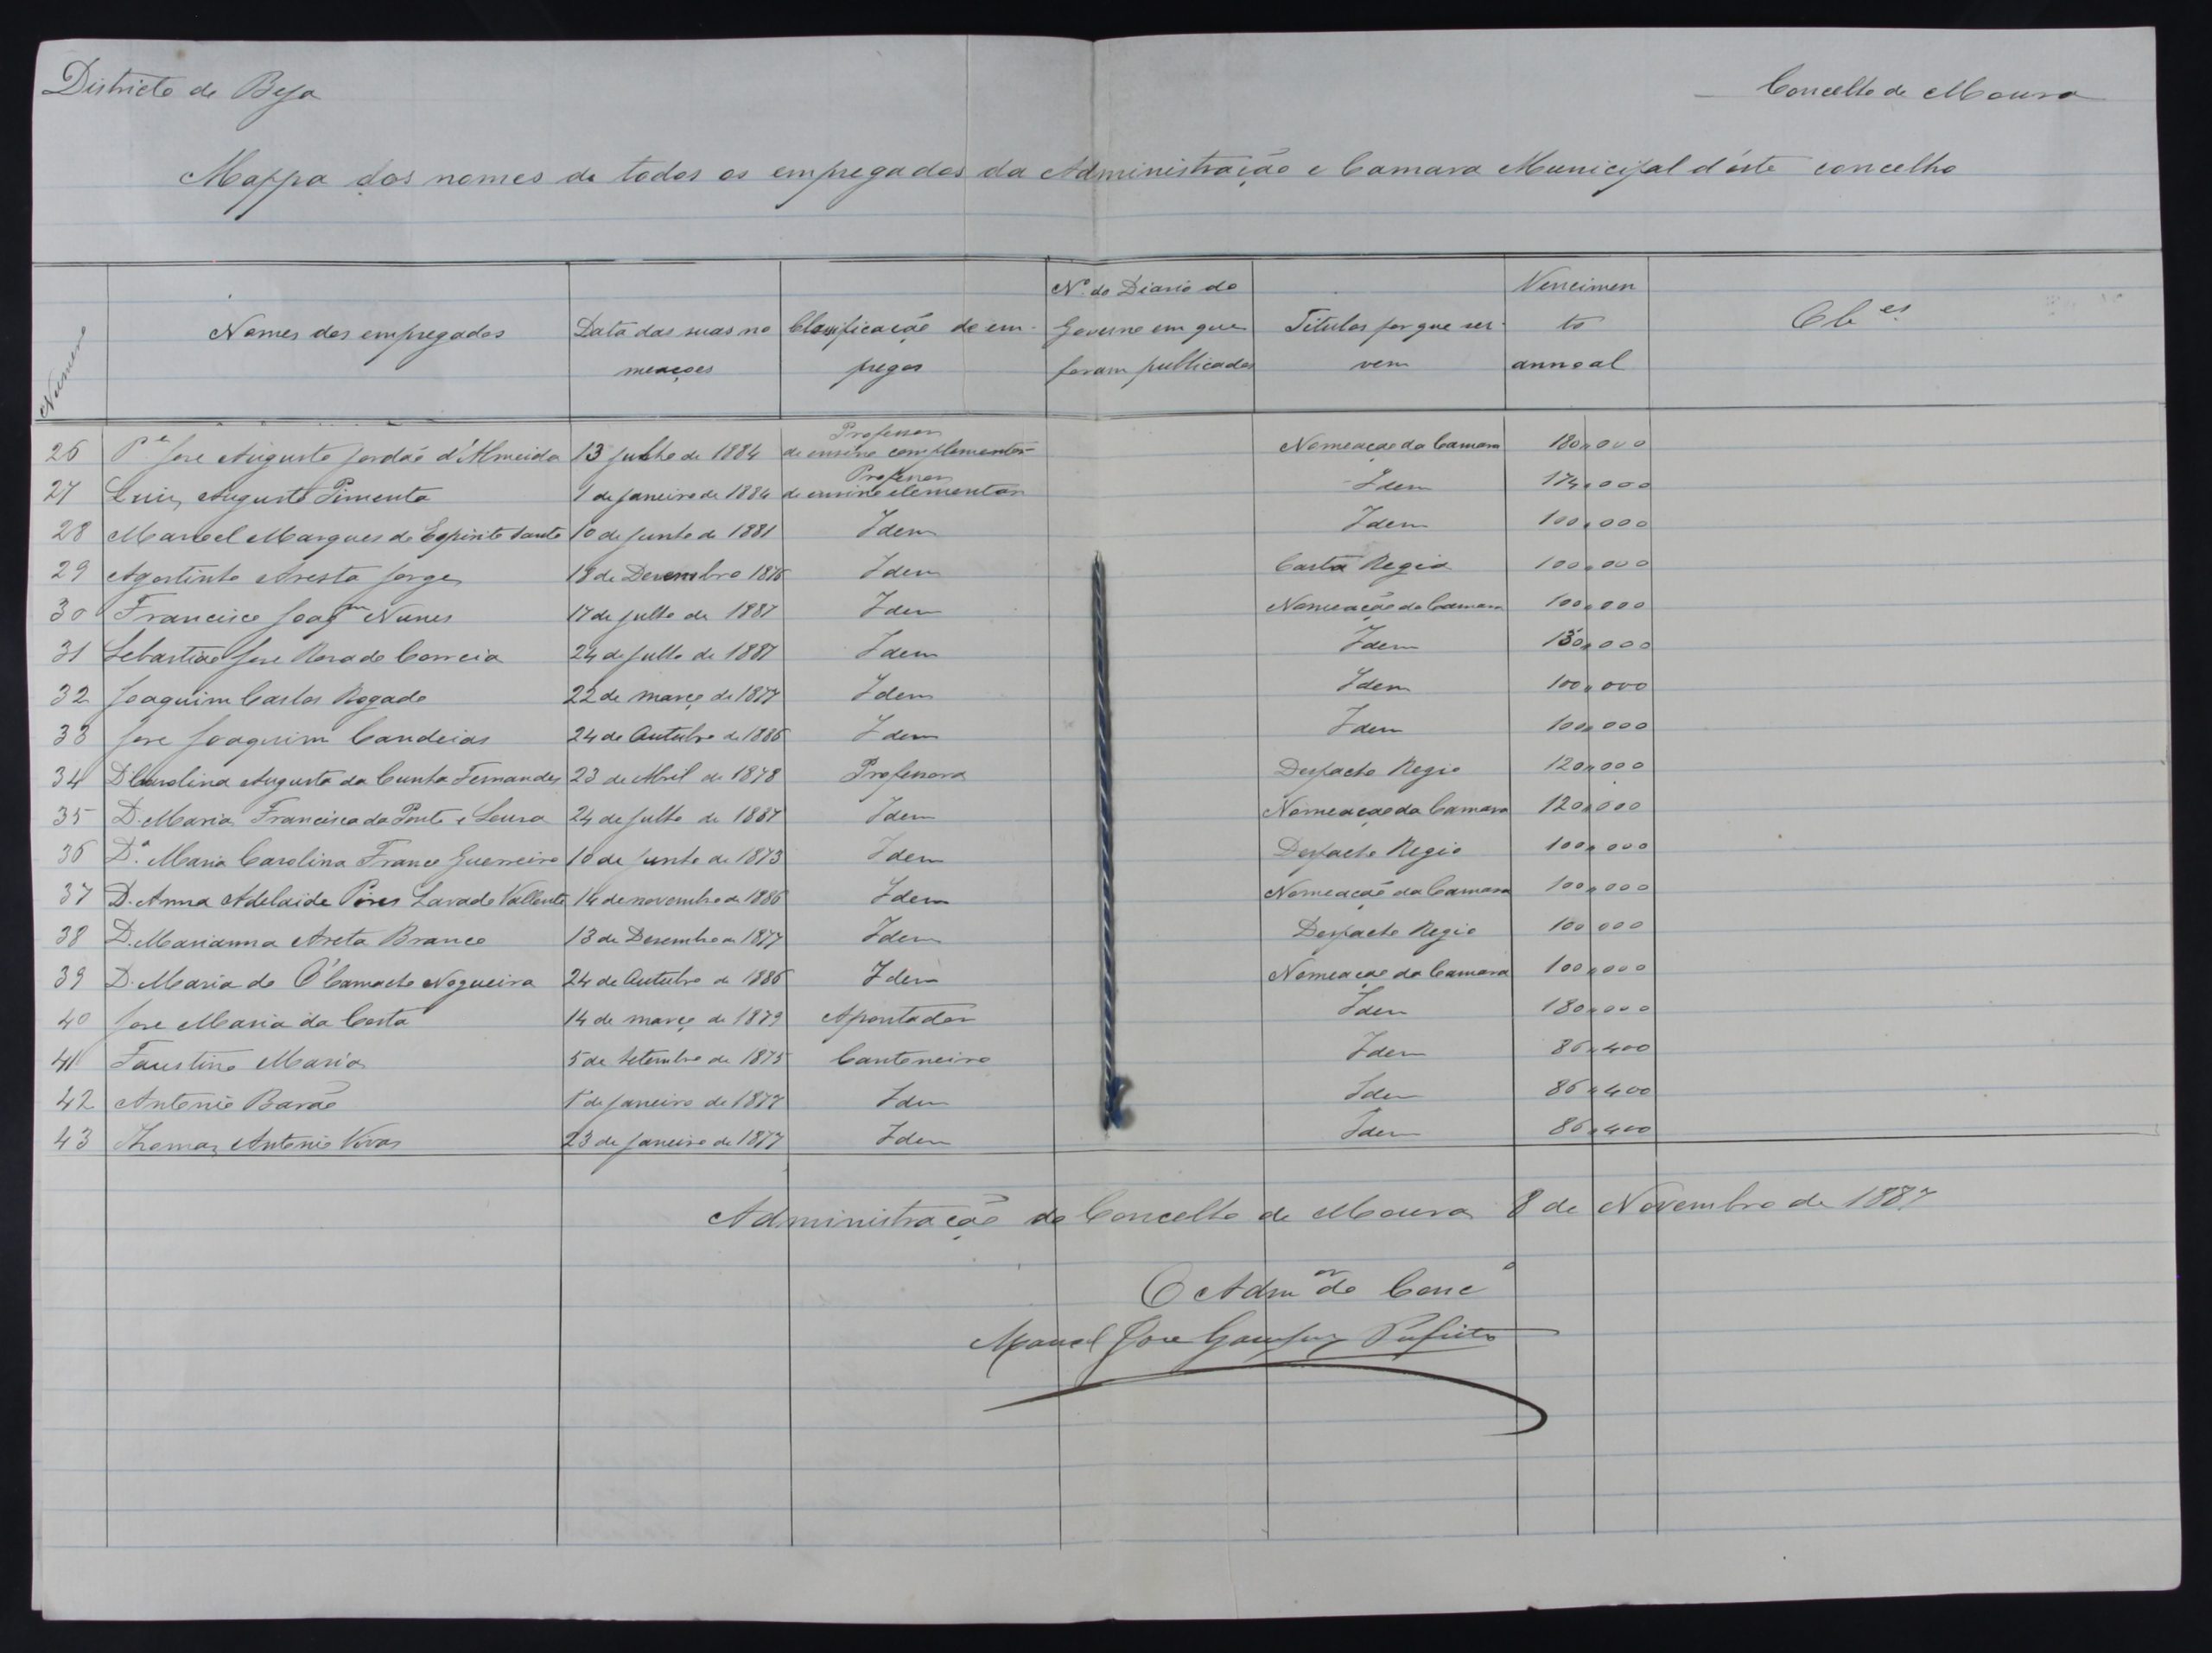 Districto de Beja
Concelho de Moura
Mappa dos nomes de todos os empregados da Administração e Camara Municipal d'este concelho
Numero
Nomes dos empregados
Data das suas no
meações
Classificação de em-
pregos
Nº do Diario do
Governo em que
foram publicados
Titulos por que ser-
vem
Vencimen
to
annoal
Obes
26 Pe Jose Augusto Jordão d'Almeida 13 julho de 1884 Professor de ensino complementar Nomeação da Camara 180,000
27 Luiz Augusto Pimenta 1 de janeiro de 1884 Professor de ensino elementar Idem 174,000
28 Manoel Marques do Espirito Santo 10 de junho de 1881 Idem Idem 100,000
29 Agostinho Aresta Jorge 18 de Desembro 1876 Idem Carta Regia 100,000
30 Francisco Joaqm Nunes 17 de julho de 1887 Idem Nomeação da Camara 100,000
31 Sebastião Jose Rosado Correia 24 de julho de 1887 Idem Idem 130,000
32 Joaquim Carlos Rogado 22 de março de 1877 Idem Idem 100,000
33 Jose Joaquim Candeias 24 de Outubro de 1886 Idem Idem 100,000
34 D Carolina Augusta da Cunha Fernandes 23 de Abril de 1878 Professora Despacho Regio 120,000
35 D. Maria Francisca da Ponte e Sousa 24 de julho de 1887 Idem Nomeação da Camara 120,000
36 D.a Maria Carolina Franco Guerreiro 10 de junho de 1873 Idem Despacho Regio 100,000
37 D. Anna Adelaide Pires Lavado Vallente 14 de novembro de 1886 Idem Nomeação da Camara 100,000
38 D. Marianna Areta Branco 13 de Desembro de 1877 Idem Despacho Regio 100,000
39 D. Maria do O' Camacho Nogueira 24 de Outubro de 1886 Idem Nomeação da Camara 100,000
40 Jose Maria da Costa 14 de março de 1879 Apontador Idem 180,000
41 Faustino Maria 5 de Setembro de 1875 Cantoneiro Idem 86,400
42 Antonio Barão 1º de janeiro de 1877 Idem Idem 86,400
43 Thomaz Antonio Vivas 23 de janeiro de 1877 Idem Idem 86,400
Administração do Concelho de Moura 8 de Novembro de 1887
O Admor do Conco
Manoel Jose